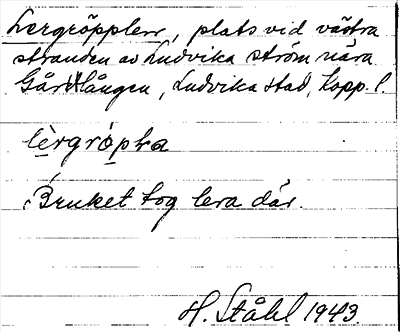 Lergröpplen, plats vid västra
stranden av Ludvika ström nära
Gårdlången, Ludvika stad, Kopp. l.
lergröpka
Bruket tog lera där.
H. Ståhl 1943.